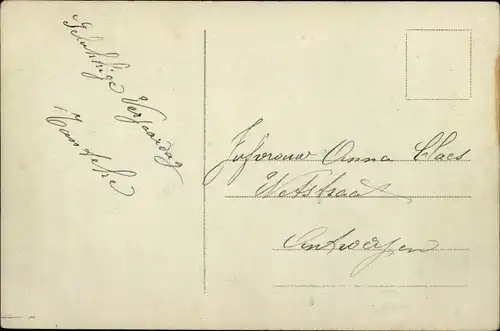 Gelukkige Verjaardag
Juferouw Anna Claes
Wetstraat
Antwerpen